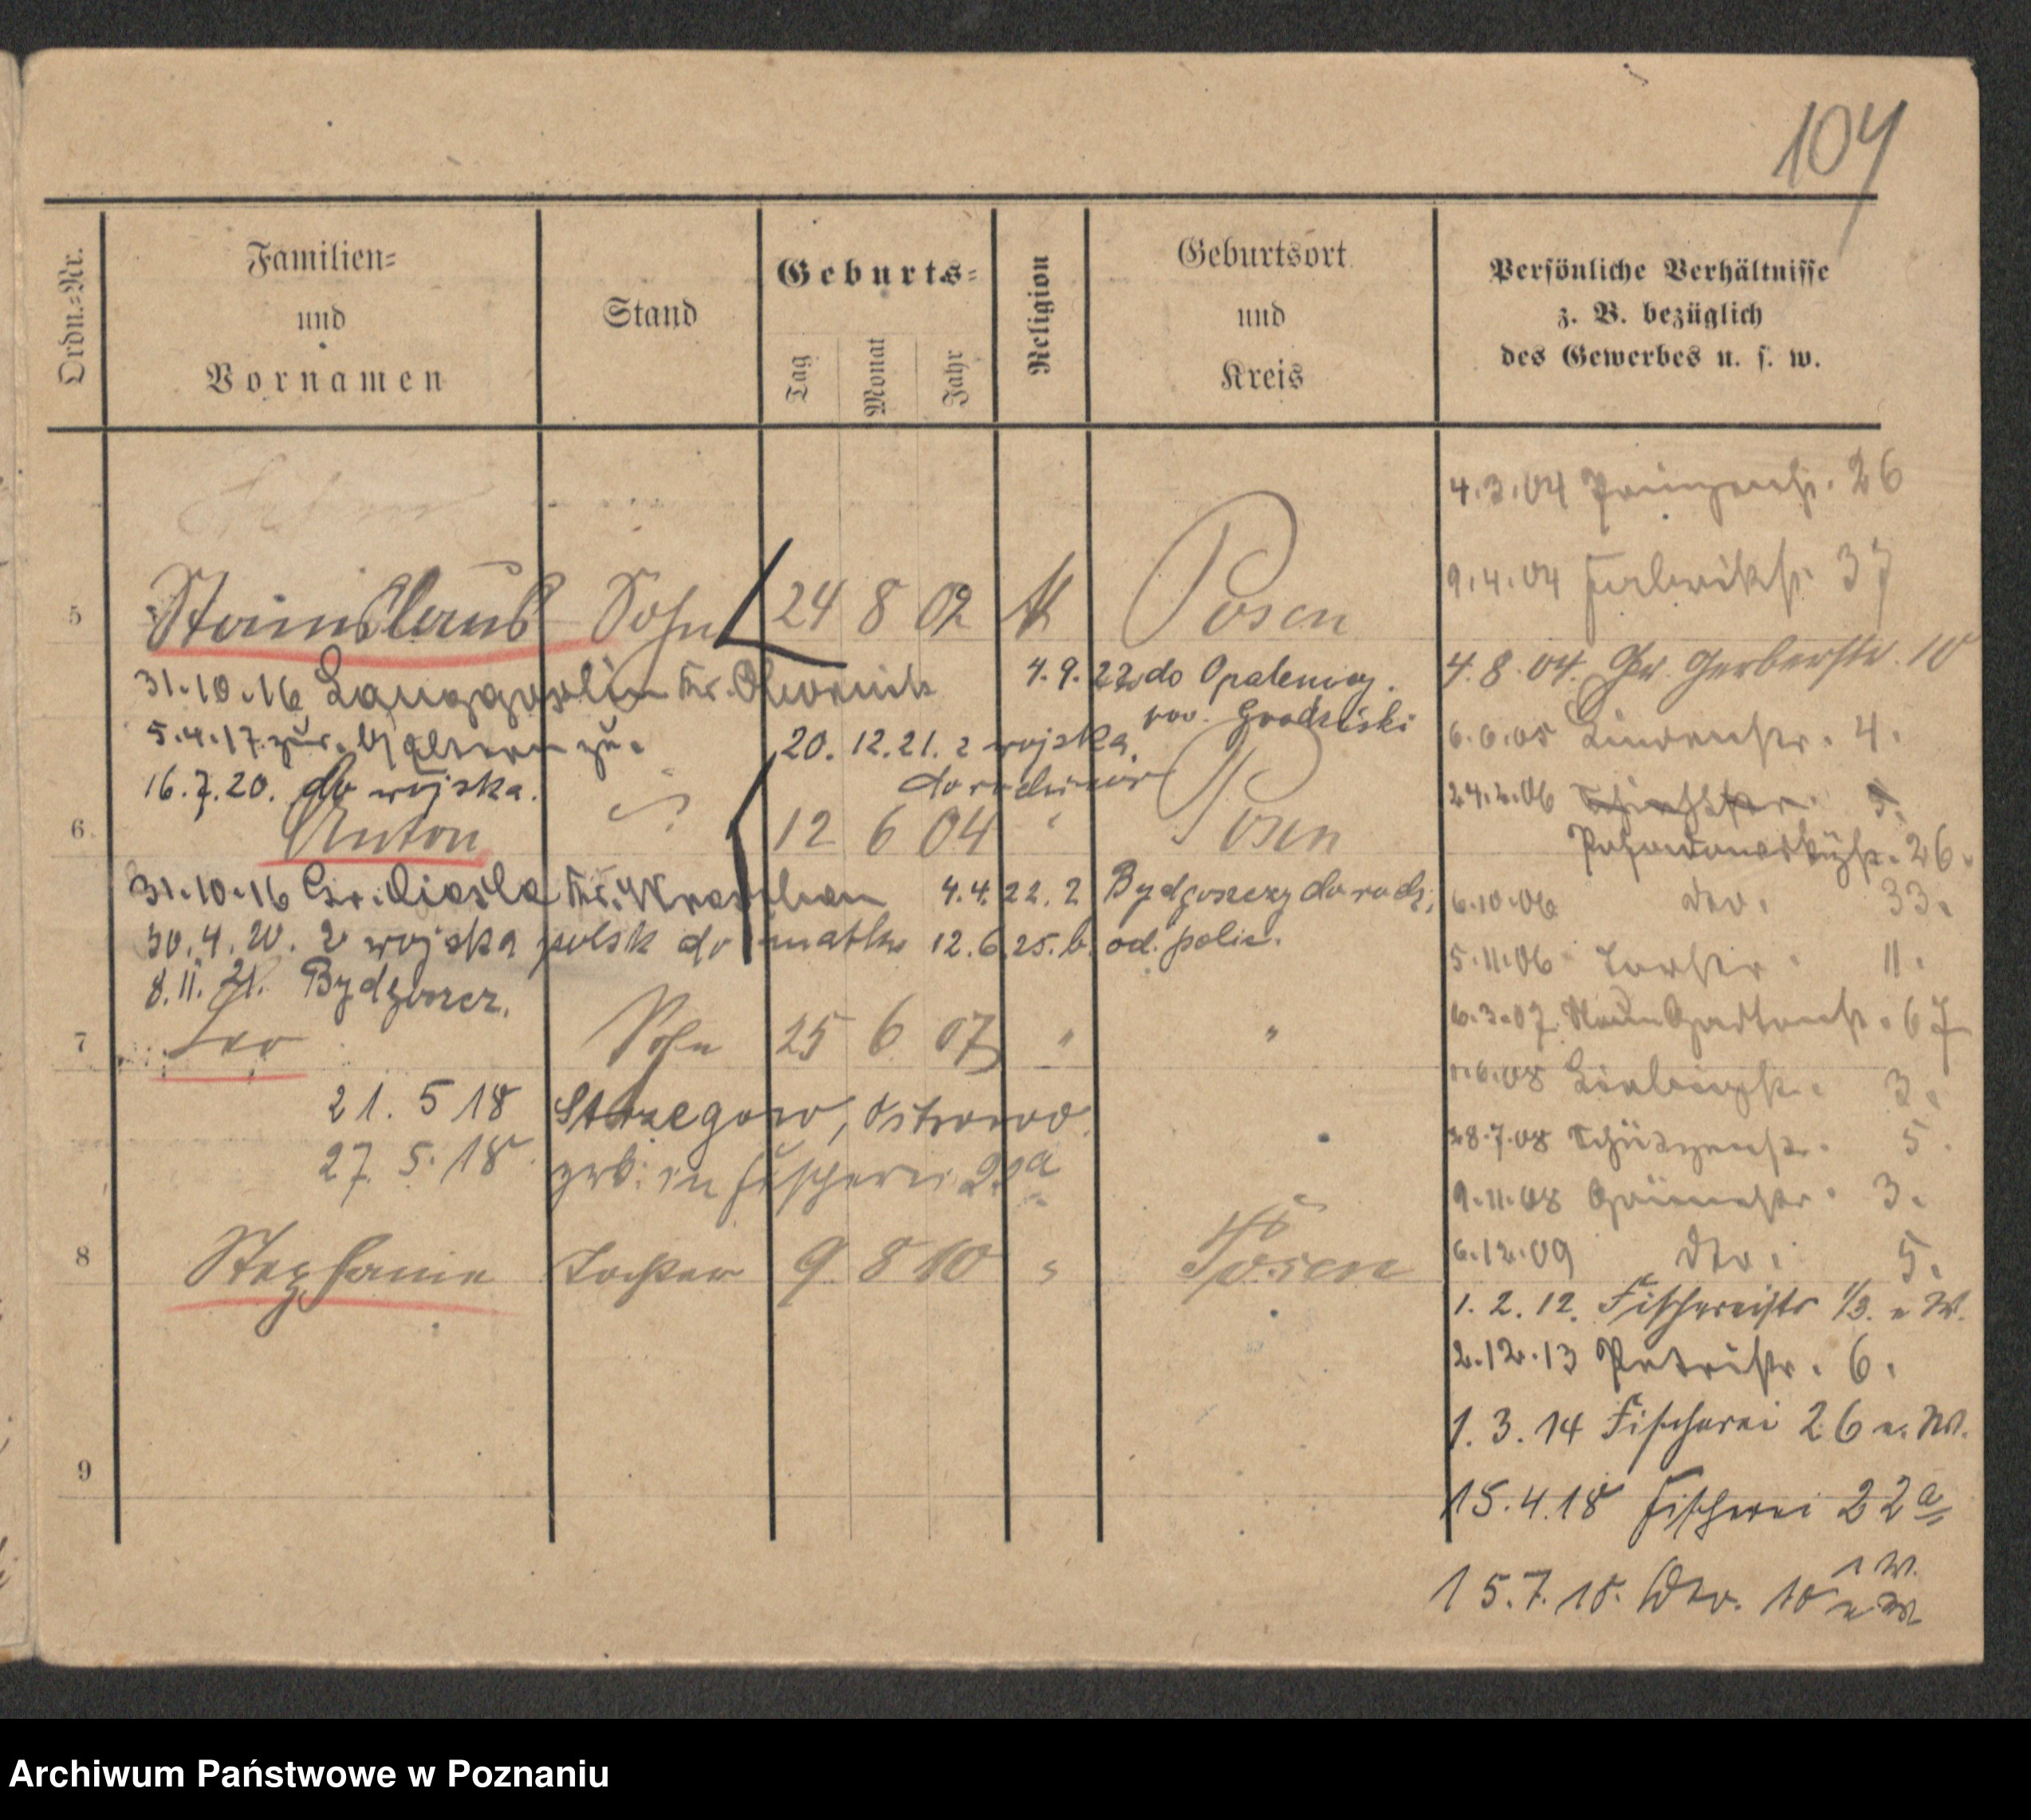 104
Ordn.-Nr.
Familien-
und
Vornamen
Stand
Geburts-
Tag
Monat
Jahr
Religion
Geburtsort
und
Kreis
Persönliche Verhältnisse
z. B. bezüglich
des Gewerbes u. s. w.
5 Stanislaus Sohn 24 8 02 K Posen
31.10.16 Langgoslin Kr. Obornik
4.9.22 do Opalenicy.
pow. Grodziski
5.4.17. zur. Eltern zu.
20. 12. 21. z wojska
do rodziców
16.7.20. do wojska.
6 Anton 12 6 04 " Posen
31.10.16 Gr. Kr.
4.4.22. z Bydgoszczy do rodz.
30.4.20. z wojska polsk do matki 12.6.25. b. od. polic.
8.11.21. Bydgoszcz.
7 Leo Sohn 25 6 07 " "
21. 5 18 Strzegowo, Ostrowo.
27. 5. 18 zrk. in Fischerei 22a
8 Stephanie Tochter 9 8 10 " Posen
9
4.3.04 Prinzenstr. 26
9.4.04 Fabrikstr. 37
4.8.04. Gr. Gerberstr. 10
6.6.05 Lindenstr. 4.
24.2.06 5.
26.
6.10.06 dto. 33.
5.11.06 Torstr. 11.
6.3.07. Neue Gartenstr. 67
08 3.
28.7.08 Schützenstr. 5.
9.11.08 Grünestr. 3.
6.12.09 dto. 5.
1. 2. 12. Fischereistr 1/3. n W.
2.12.13 Petristr. 6.
1. 3. 14 Fischerei 26 n. W.
15.4.18 Fischerei 22a
15.7.18. Dto. 10
1 W.
Archiwum Państwowe w Poznaniu